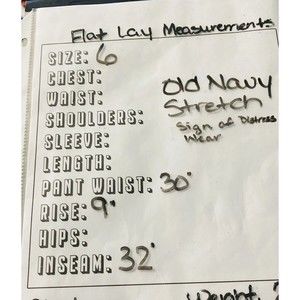 Flat Lay Measurements
SIZE: 6
CHEST:
WAIST:
SHOULDERS:
SLEEVE:
LENGTH:
PANT WAIST: 30"
RISE: 9"
HIPS:
INSEAM: 32"
Old Navy
Stretch
Sign of Distress
Wear
Weight.